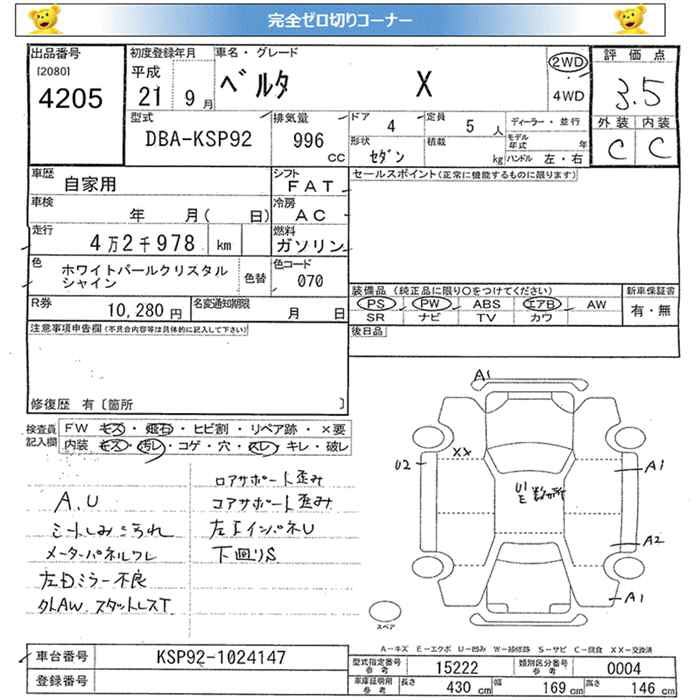 完全ゼロ切りコーナー
出品番号 [2080] 4205
初度登録年月 平成 21年 9月
車名・グレード ベルタ X
2WD 4WD
評価点 3.5
外装 内装
C C
型式 DBA-KSP92
排気量 996 CC
ドア 4
定員 5 人
形状 セダン
積載 kg
ディーラー・並行
モデル年式 年
ハンドル 左・右
車歴 自家用
シフト FAT
セールスポイント(正常に機能するものに限ります)
車検 年 月( 日)
冷房 AC
走行 4万2千978 km
燃料 ガソリン
色 ホワイトパールクリスタルシャイン
色替
色コード 070
装備品 (純正品に限り○をつけてください)
新車保証書
PS PW ABS エアB AW
有・無
SR ナビ TV カワ
R券 10,280 円
名変通知期限 月 日
後日品
注意事項申告欄(不具合内容等は具体的に記入して下さい)
修復歴 有〔箇所 〕
検査員記入欄
FW キズ・飛石・ヒビ割・リペア跡・×要
内装 キズ・汚レ・コゲ・穴・スレ・キレ・破レ
A.U
シートしみ汚れ
メーターパネルワレ
左Dミラー不良
外AW スタットレスT
ロアサポート歪み
コアサポート歪み
左エインパネU
下回りS
A1
XX
U2
U1
E
数カ所
A1
A2
A1
スペア
A-キズ E-エクボ U-凹み W-補修跡 S-サビ C-腐食 XX-交換済
車台番号 KSP92-1024147
登録番号
型式指定番号 参考 15222
類別区分番号 参考 0004
車庫証明用 参考 長さ 430 cm 幅 169 cm 高さ 146 cm